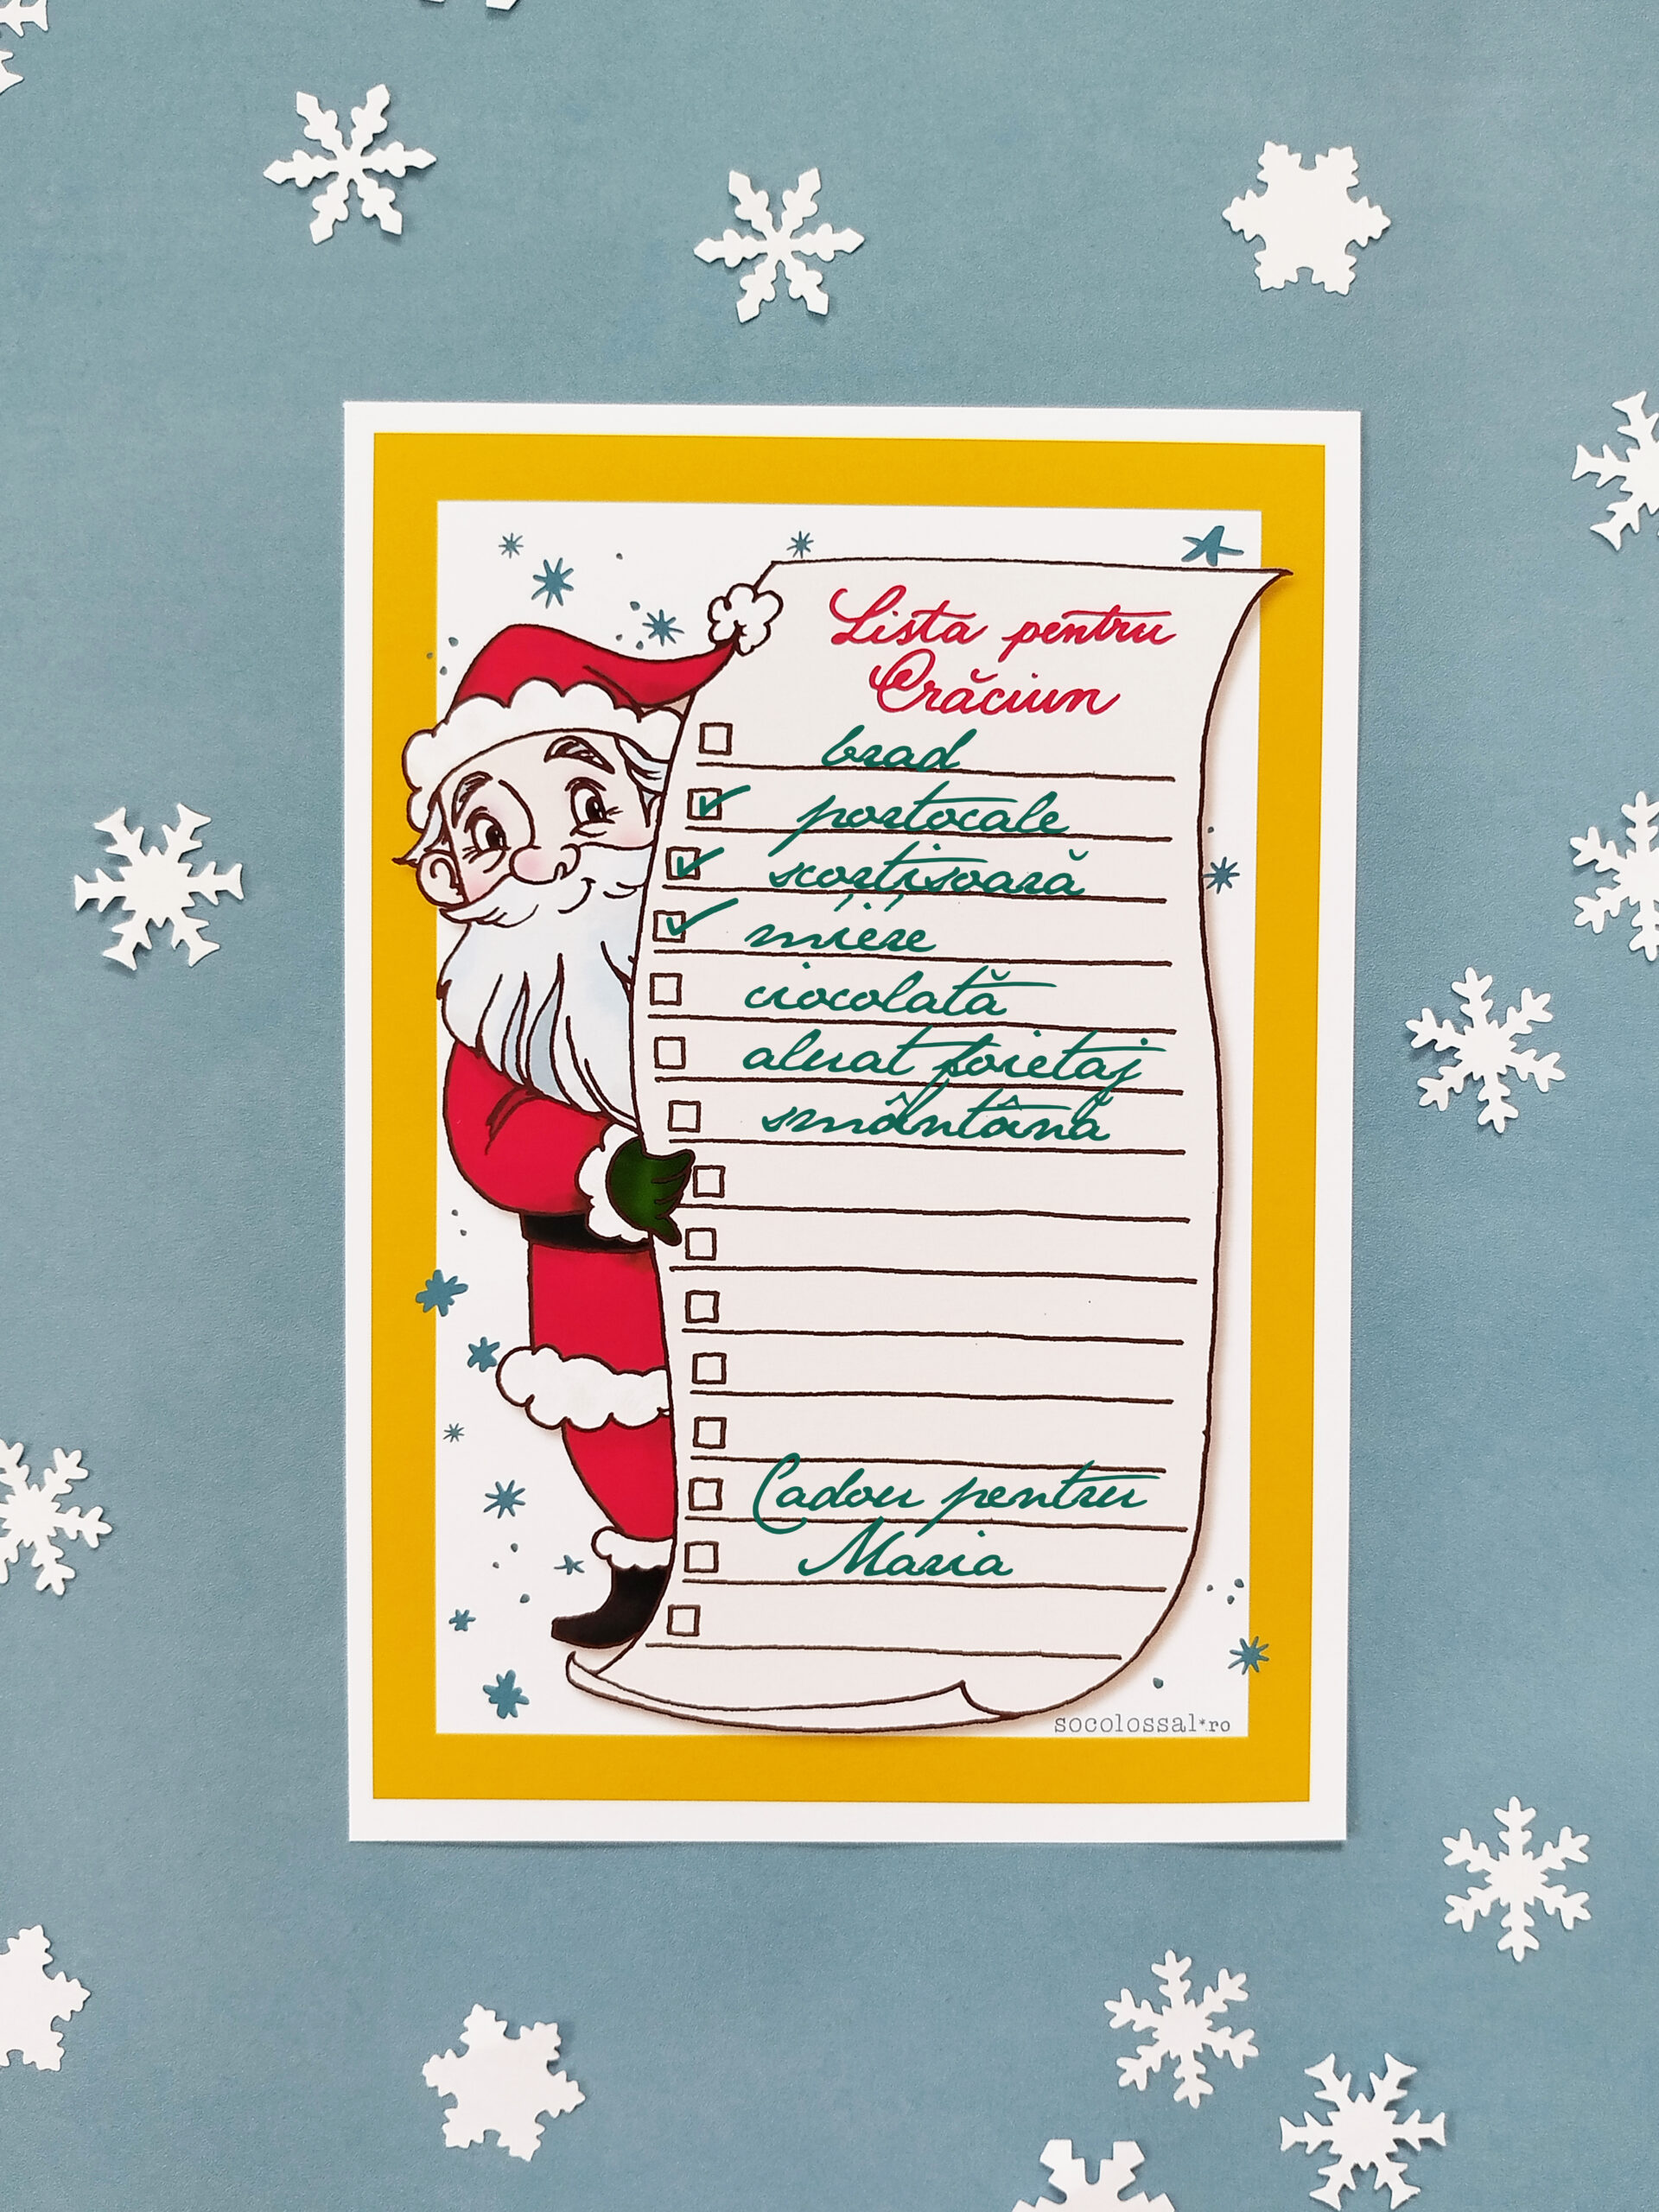 Lista pentru
Crăciun
brad
portocale
scorțișoară
miere
ciocolată
aluat foietaj
smântână
Cadou pentru
Maria
socolossal*ro